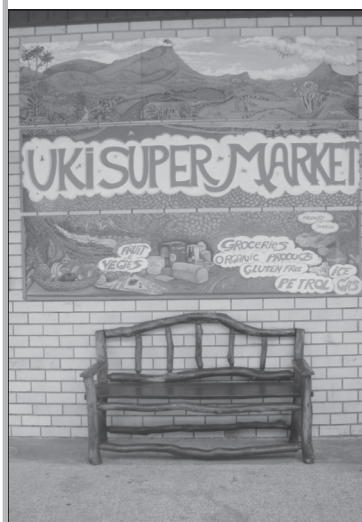 UKi SUPER MARKET
FRUIT
VEGIES
GROCERIES
ORGANIC PRODUCTS
GLUTEN FREE
ICE
PETROL GAS